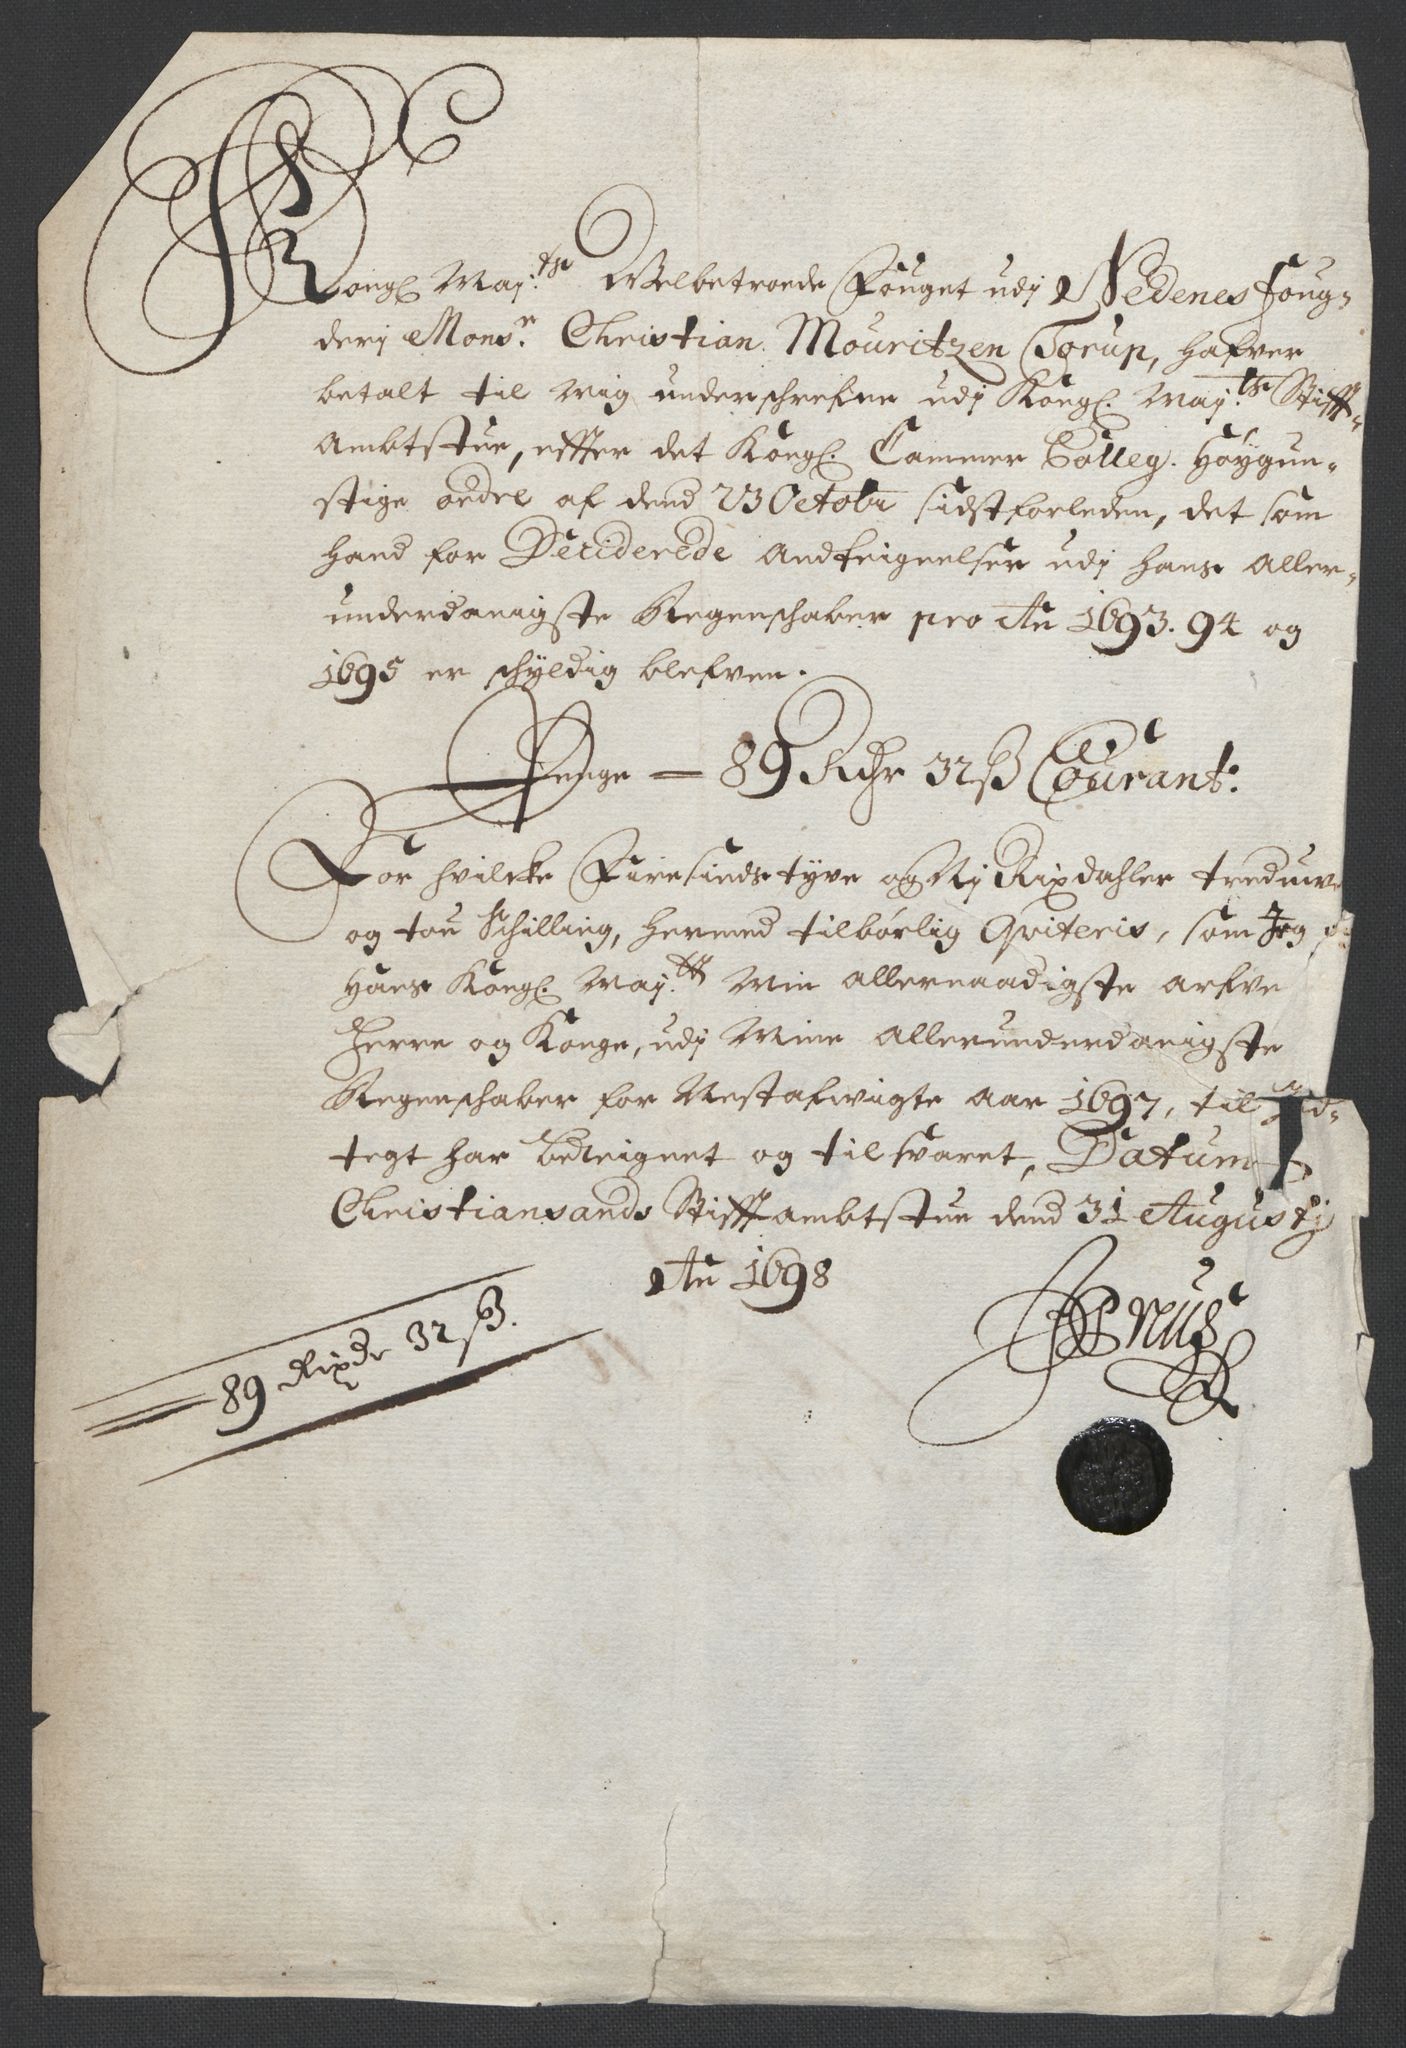 Kongl. May.ts Welbetroede Fouget udj Nedenes foug-
derj Mons.r Christian Mouritzen Torup, hafver
betalt til Mig underschrefne udj Kongl. May.ts Stifft-
Ambtstue, effter det Kongl. Cammer Colleg. Høÿgun-
stige ordre af dend 23 Octobr sidstforleden, det som
hand for Deciderede Andteignelser udj hans Aller-
underdanigste Regenschaber pro Ao 1693. 94 og
1695 er schÿldig blefven.
Penge — 89 Rdr 32 ß Courant.
For hvilcke Fiiresindstyve og Nj Rixdahler trediuve
og tou Schilling, hermed tilbørlig Qviteris, som Jeg
Hans Kongl. May.tt Min allernaadigste arfve
Herre og Konge, udj Mine allerunderdanigste
Regenschaber for Nestafvigte aar 1697, til Ind-
tegt har beteignet og tilsvaret, Datum
Christiansands Stifftambtstue dend 31 Augustj
Ao 1698
89 Rixdr 32 ß.